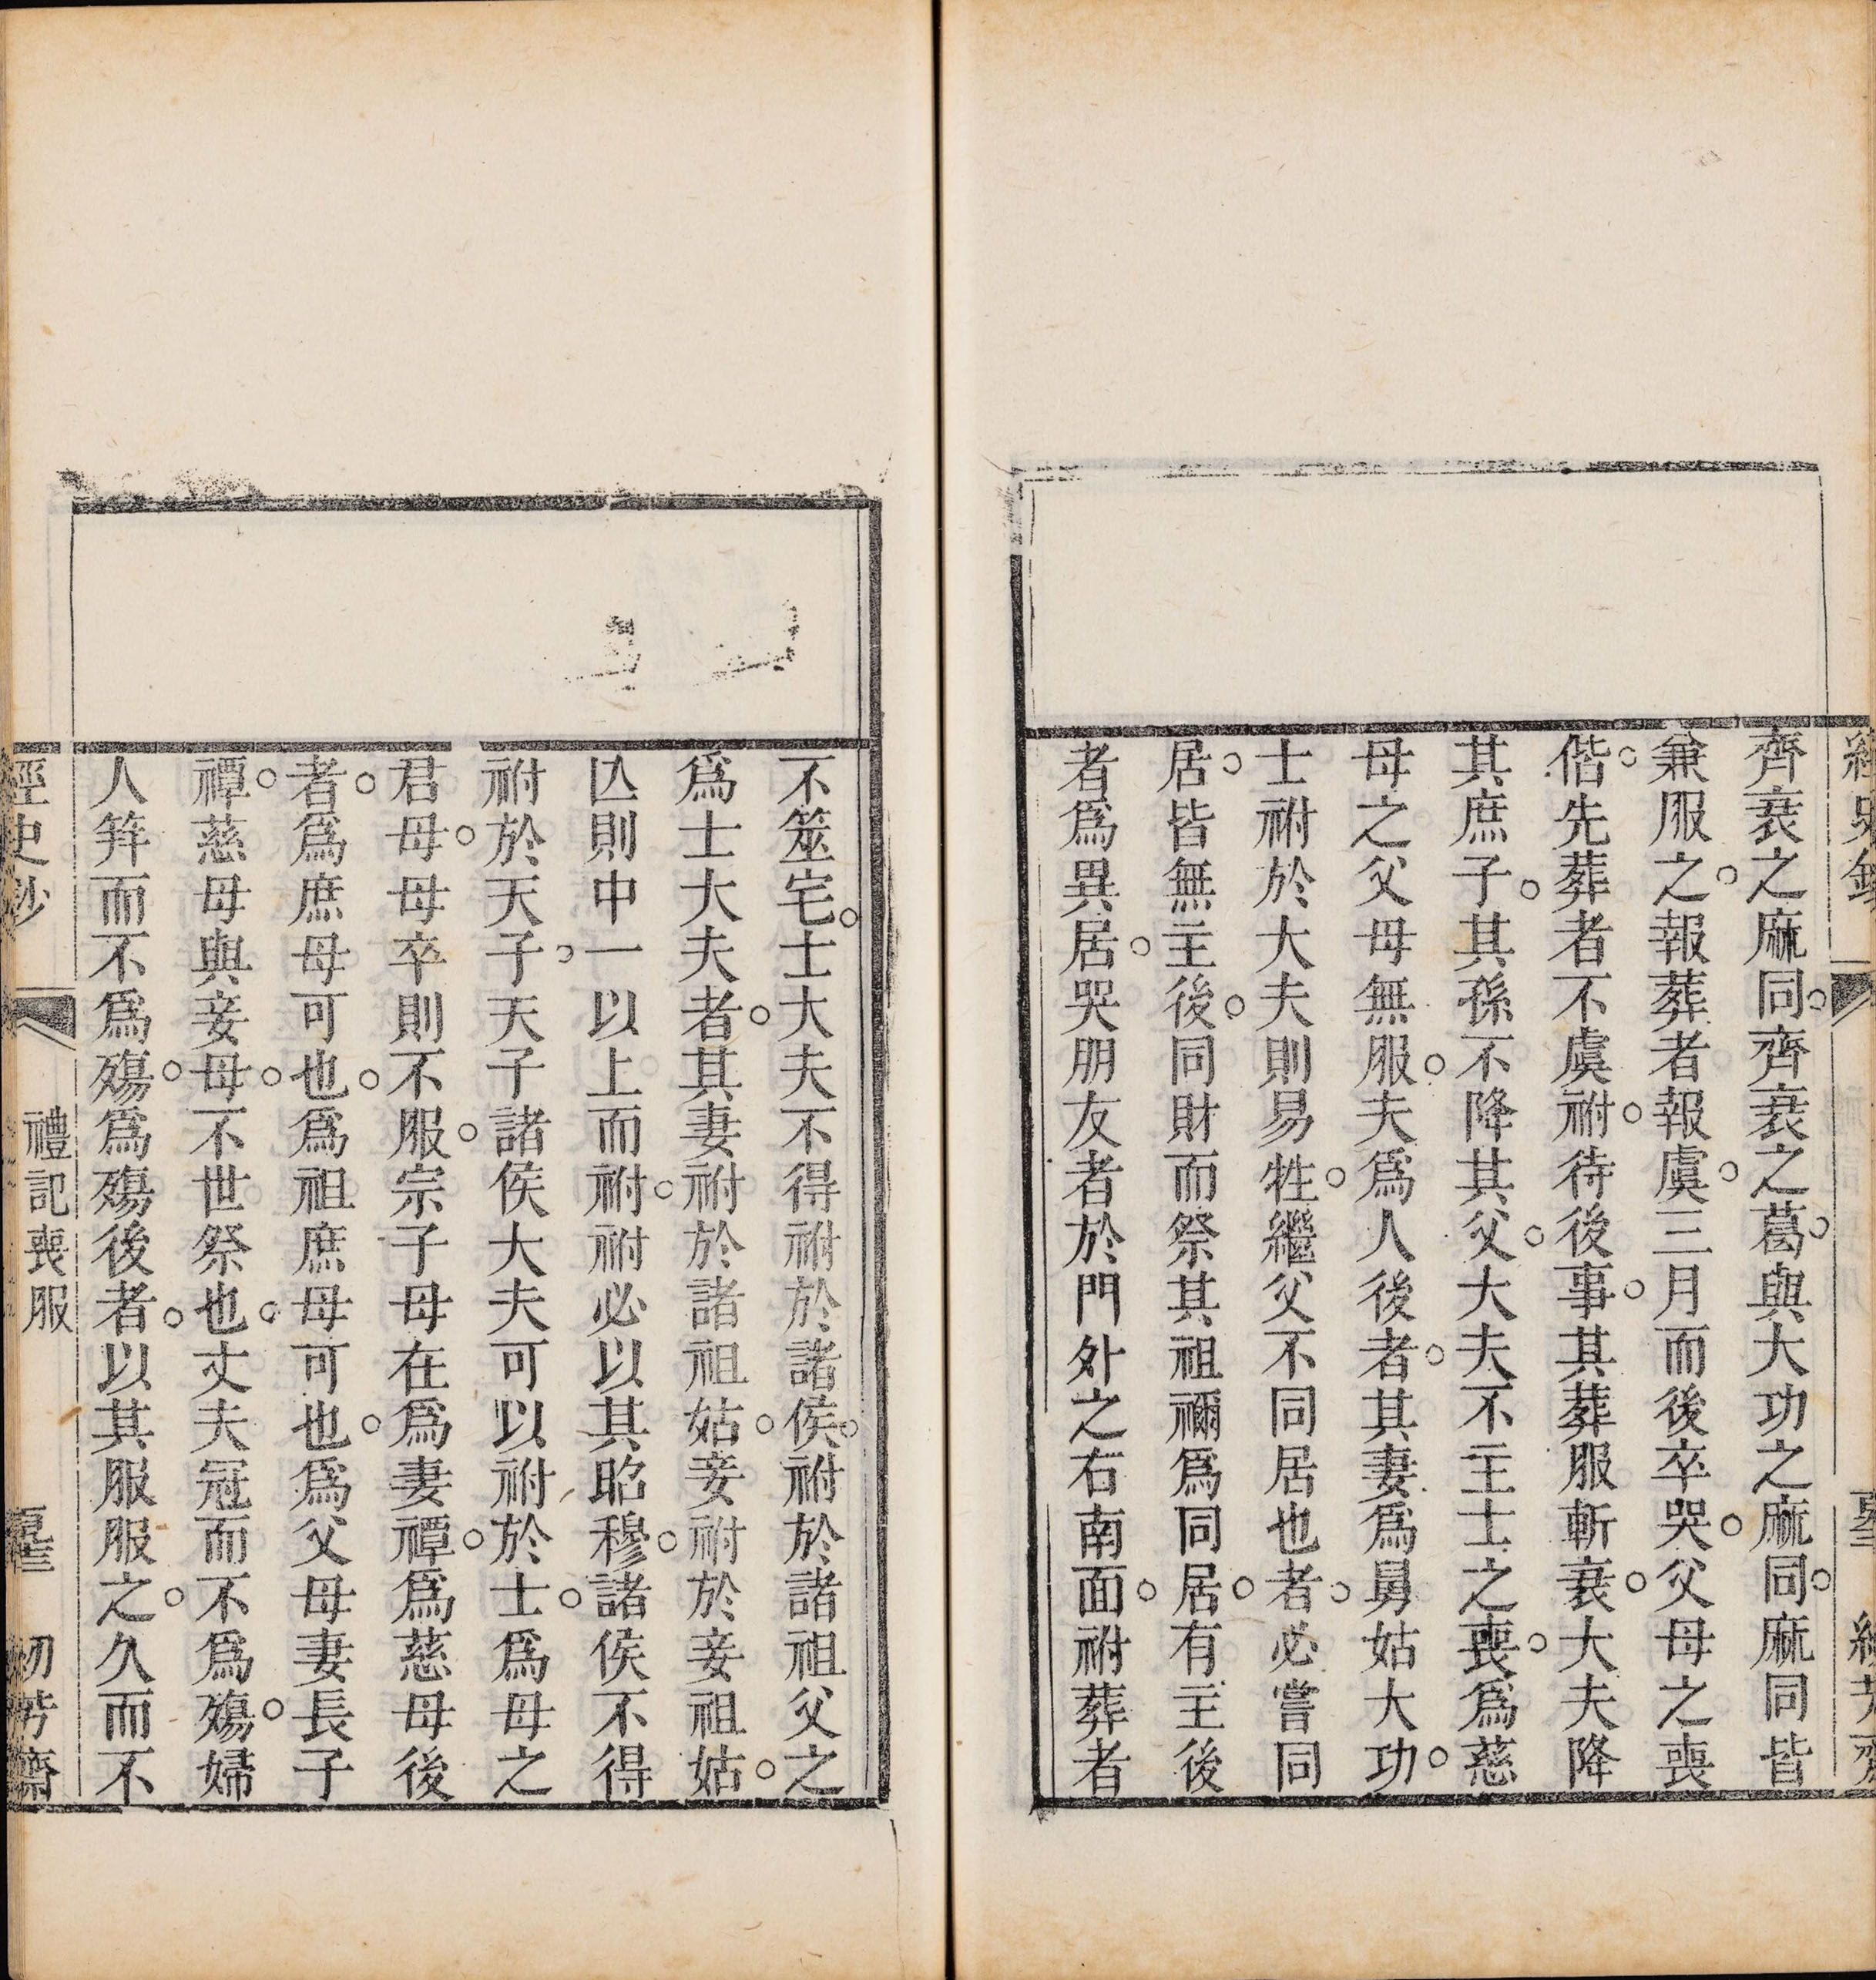 齊衰之麻同。齊衰之葛。與大功之麻同。麻同皆
兼服之。報葬者報虞。三月而後卒哭。父母之喪
偕。先葬者不虞祔。待後事。其葬服斬衰。大夫降
其庶子。其孫不降其父。大夫不主士之喪。爲慈
母之父母無服。夫爲人後者。其妻爲舅姑大功。
士祔於大夫則易牲。繼父不同居也者。必嘗同
居。皆無主後。同財而祭其祖禰爲同居。有主後
者爲異居。哭朋友者於門外之右南面。祔葬者
不筮宅。士大夫不得祔於諸侯。祔於諸祖父之
爲士大夫者。其妻祔於諸祖姑。妾祔於妾祖姑。
亾則中一以上而祔。祔必以其昭穆。諸侯不得
祔於天子。天子諸侯大夫可以祔於士。爲母之
君母。母卒則不服。宗子母在爲妻禫。爲慈母後
者。爲庶母可也。爲祖庶母可也。爲父母妻長子
禫。慈母與妾母。不世祭也。丈夫冠而不爲殤。婦
人筓而不爲殤。爲殤後者。以其服服之。久而不
經史鈔
禮記喪服